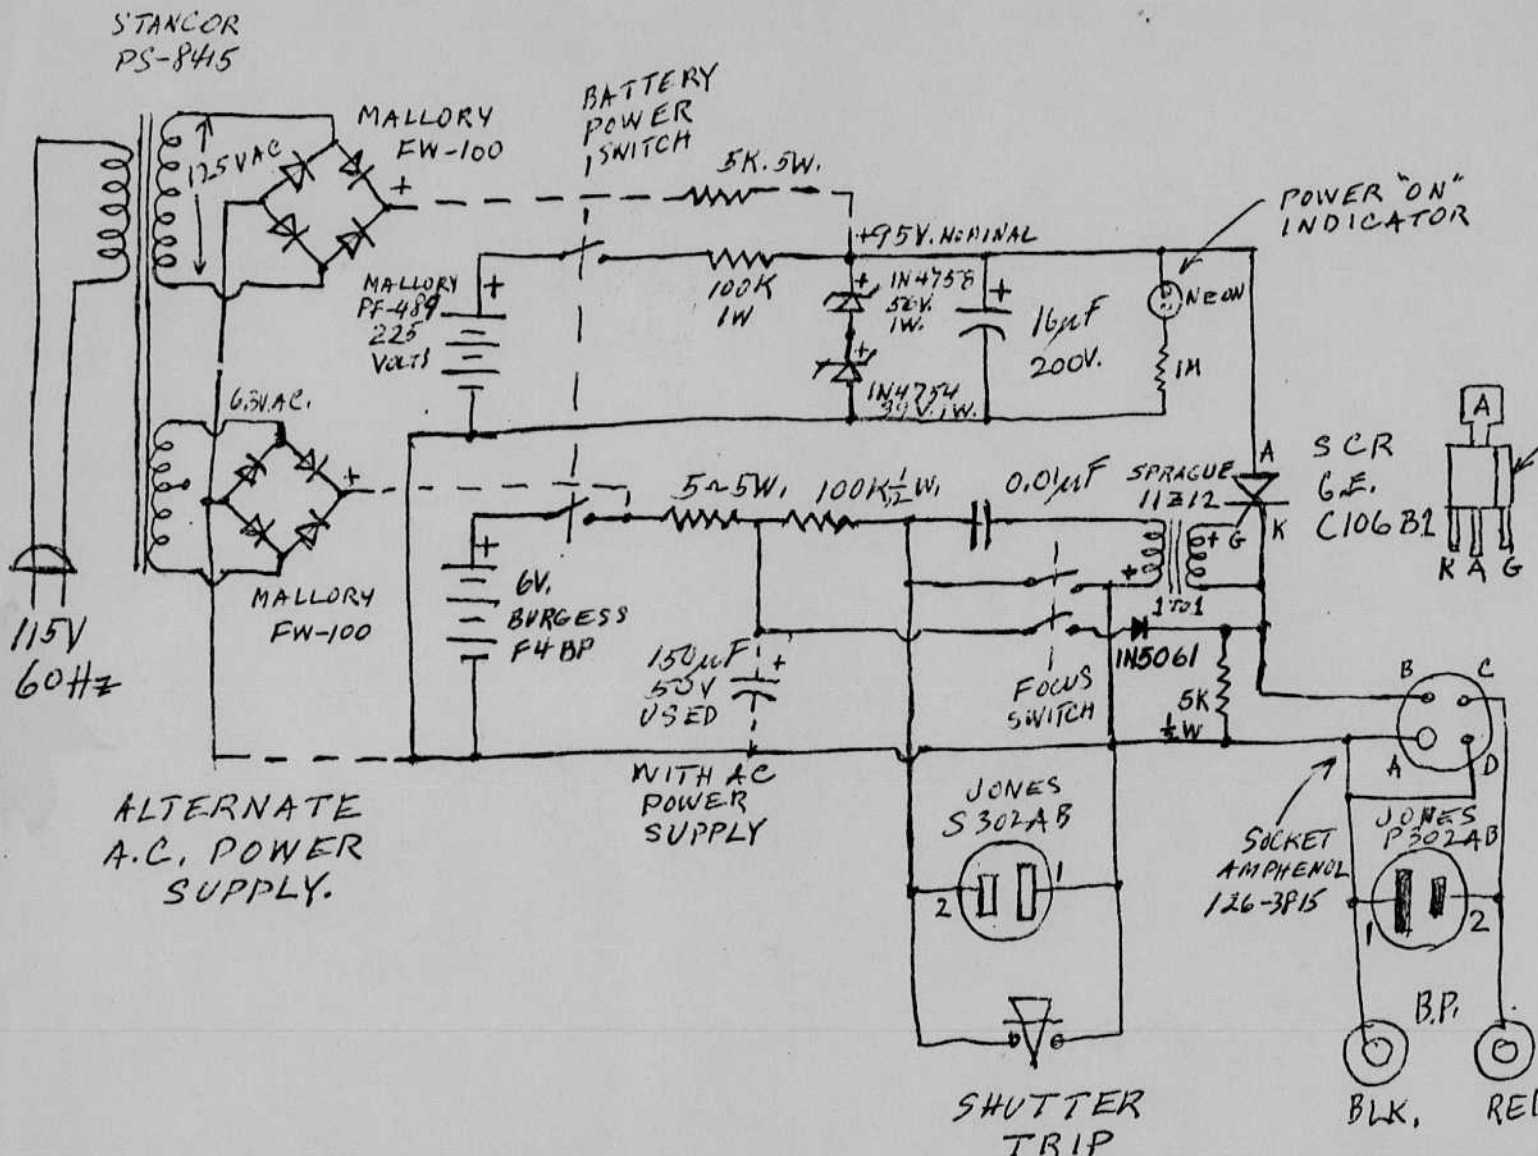 STANCOR
PS-8415
125VAC
MALLORY
FW-100
+
BATTERY
POWER
SWITCH
5K.5W.
+95V. NOMINAL
POWER "ON"
INDICATOR
MALLORY
PF-489
225
VOLTS
+
100K
1W
+
1N4758
56V.
1W.
+
1N4754
39V.1W.
+
16µF
200V.
NEON
1M
6.3V.AC.
+
MALLORY
FW-100
115V
60Hz
+
6V.
BURGESS
F4BP
5~5W.
100K½W.
0.01µF
SPRAGUE
11Z12
+
+
G
1 TO 1
A
K
SCR
G.E.
C106B1
A
K A G
150µF
50V
USED
+
WITH AC
POWER
SUPPLY
FOCUS
SWITCH
1N5061
5K
½W
B
C
A
D
ALTERNATE
A.C. POWER
SUPPLY.
JONES
S302AB
2
1
SOCKET
AMPHENOL
126-3815
JONES
P302AB
1
2
SHUTTER
TRIP
B.P.
BLK.
RED